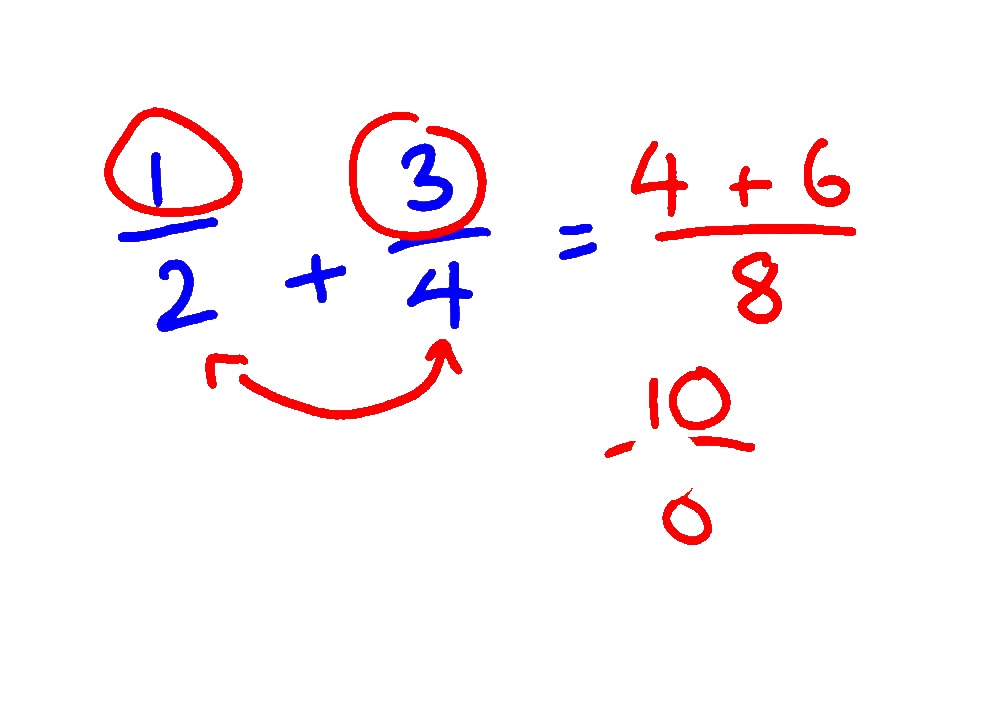 1/2 + 3/4 = (4 + 6)/8
10/0